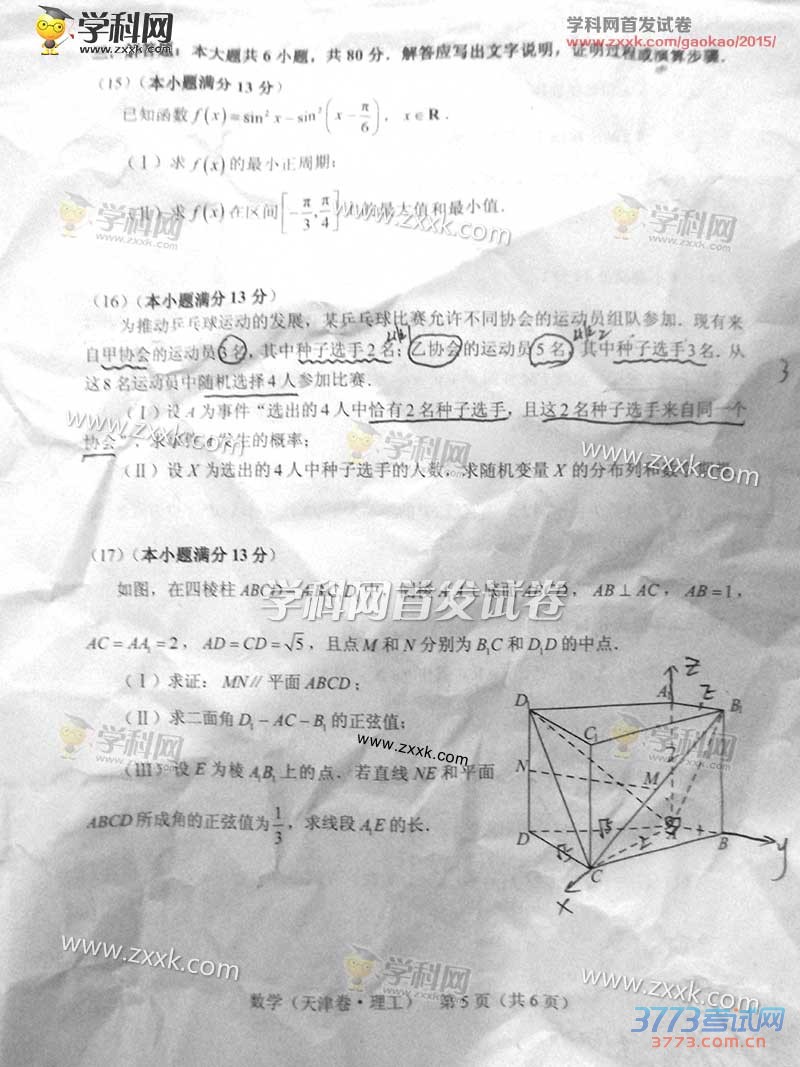 学科网
www.zxxk.com
学科网首发试卷
www.zxxk.com/gaokao/2015/
本大题共 6 小题，共 80 分．解答应写出文字说明，证明过程或演算步骤．
（15）（本小题满分 13 分）
已知函数 f(x)=sin² x−sin²(x−π/6)， x∈R．
（Ⅰ）求 f(x) 的最小正周期；
（Ⅱ）求 f(x) 在区间 [−π/3, π/4] 最大值和最小值．
学科网
www.zxxk.com
学科网
www.zxxk.com
（16）（本小题满分 13 分）
为推动乒乓球运动的发展，某乒乓球比赛允许不同协会的运动员组队参加．现有来
自甲协会的运动员 3 名，其中种子选手 2 名；乙协会的运动员 5 名，其中种子选手 3 名．从
3
这 8 名运动员中随机选择 4 人参加比赛．
（Ⅰ）设 A 为事件“选出的 4 人中恰有 2 名种子选手，且这 2 名种子选手来自同一个
协会”，求事件 A 发生的概率；
（Ⅱ）设 X 为选出的 4 人中种子选手的人数，求随机变量 X 的分布列和数学期望．
www.zxxk.com
学科网
www.zxxk.com
（17）（本小题满分 13 分）
如图，在四棱柱 ABCD AB⊥AC， AB=1，
学科网首发试卷
AC=AA₁=2， AD=CD=√5，且点 M 和 N 分别为 B₁C 和 D₁D 的中点．
（Ⅰ）求证： MN∥平面 ABCD；
（Ⅱ）求二面角 D₁−AC−B₁ 的正弦值；
（Ⅲ）设 E 为棱 A₁B₁ 上的点．若直线 NE 和平面
ABCD 所成角的正弦值为 1/3，求线段 A₁E 的长．
学科网
www.zxxk.com
www.zxxk.com
学科网
www.zxxk.com
z
A₁
D₁
B₁
C₁
N
M
2
D
√5
A
B
y
√5
2
C
x
www.zxxk.com
学科网
www.zxxk.com
学科网
www.zxxk.com
数学（天津卷·理工） 第 5 页（共 6 页）
3773考试网
3773.com.cn